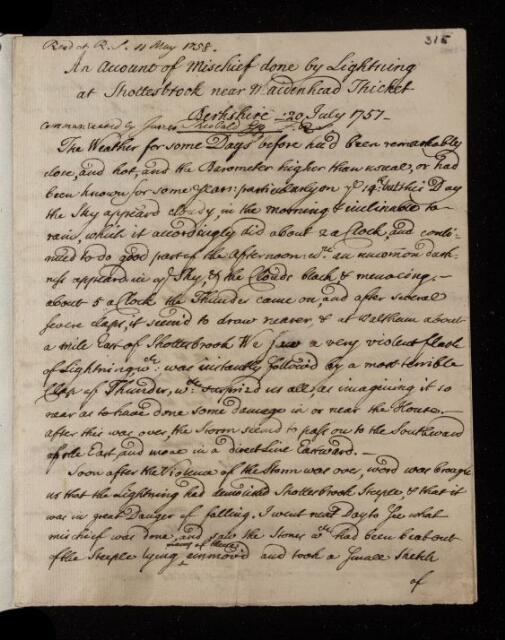 Read at R. S. 11 May 1758.
315
An Account of Mischief done by Lightning
at Shottesbrook near Maidenhead Thicket
Berkshire 20 July 1757
Communicated by James Theobald Esq
The Weather for some Days before had been remarkably
close, and hot, and the Barometer higher than usual, or had
been known for some Years: particularly on ye 19th but this Day
the Sky appeard cloudy, in the morning & inclinable to
rain, which it accordingly did about 2 a Clock, and conti-
nued to do good part of the Afternoon: wth an uncommon dark-
ness appeared in ye Sky, & the Clouds black & menacing. -
about 5 a Clock the Thunder came on, and after several
severe claps, it seem'd to draw nearer, & at Waltham about
a mile East of Shottesbrook We saw a very violent flash
of Lightning wch: was instantly follow'd by a most terrible
Clap of Thunder, wch surprized us all, as imagining it so
near as to have done some damage in or near the House. -
after this was over, the Storm seemd to pass on to the Southward
of the East, and move in a direct Line Eastward. -
Soon after the Violence of the Storm was over, word was brought
us that the Lightning had demolished Shottesbrook Steeple, & that it
was in great Danger of falling. I went next Day to See what
mischief was done, and saw the Stones wch had been beat out
many of them
of the Steeple lying unmov'd and took a Small Sketch
of